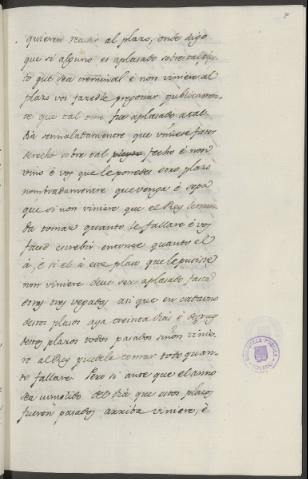 quieren venir al plazo, onde digo
que si alguno es aplazado sobre tal fe
to que sea creminal è non viniere al
plazo vos facedle pregonar publicamen
te que tal ome fue aplazado a tal
dia sennaladamente que viniese facer
derecho sobre tal fecho è non
vino è vos que le ponedes otro plazo
nombradamente que venga è sepa
que si non viniere que el Rey le man
da tomar quanto le fallare è vos
faced escrebir entonce quanto el
à, è si el à este plazo que le pusiere
non viniere deve ser aplazado fasta
tres vegadas, asi que en cada uno
destos plazos aya treinta dias è despues
destos plazos todos pasados si non vinie
re al Rey puedele tomar todo quan
to fallare. Pero si ante que el anno
sea cumplido del dia que estos plazos
fueron pasados arriba viniere, è